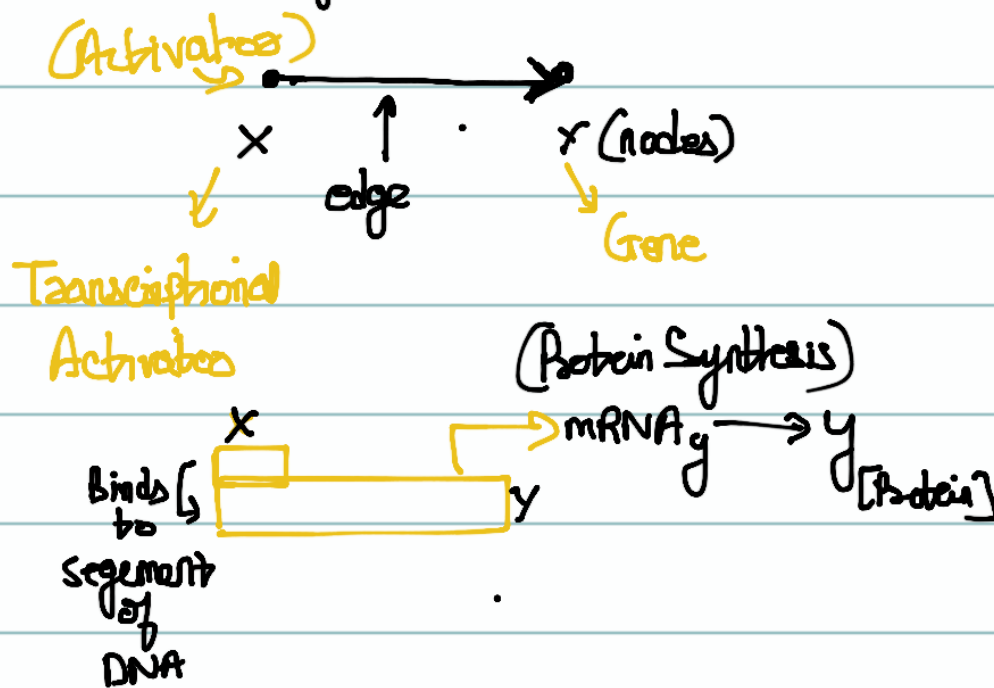 (Activator)
X
Y (nodes)
edge
Gene
Transcriptional
Activator
(Protein Synthesis)
X
mRNA y → y
[Protein]
Binds
to
segement
of
DNA
Y